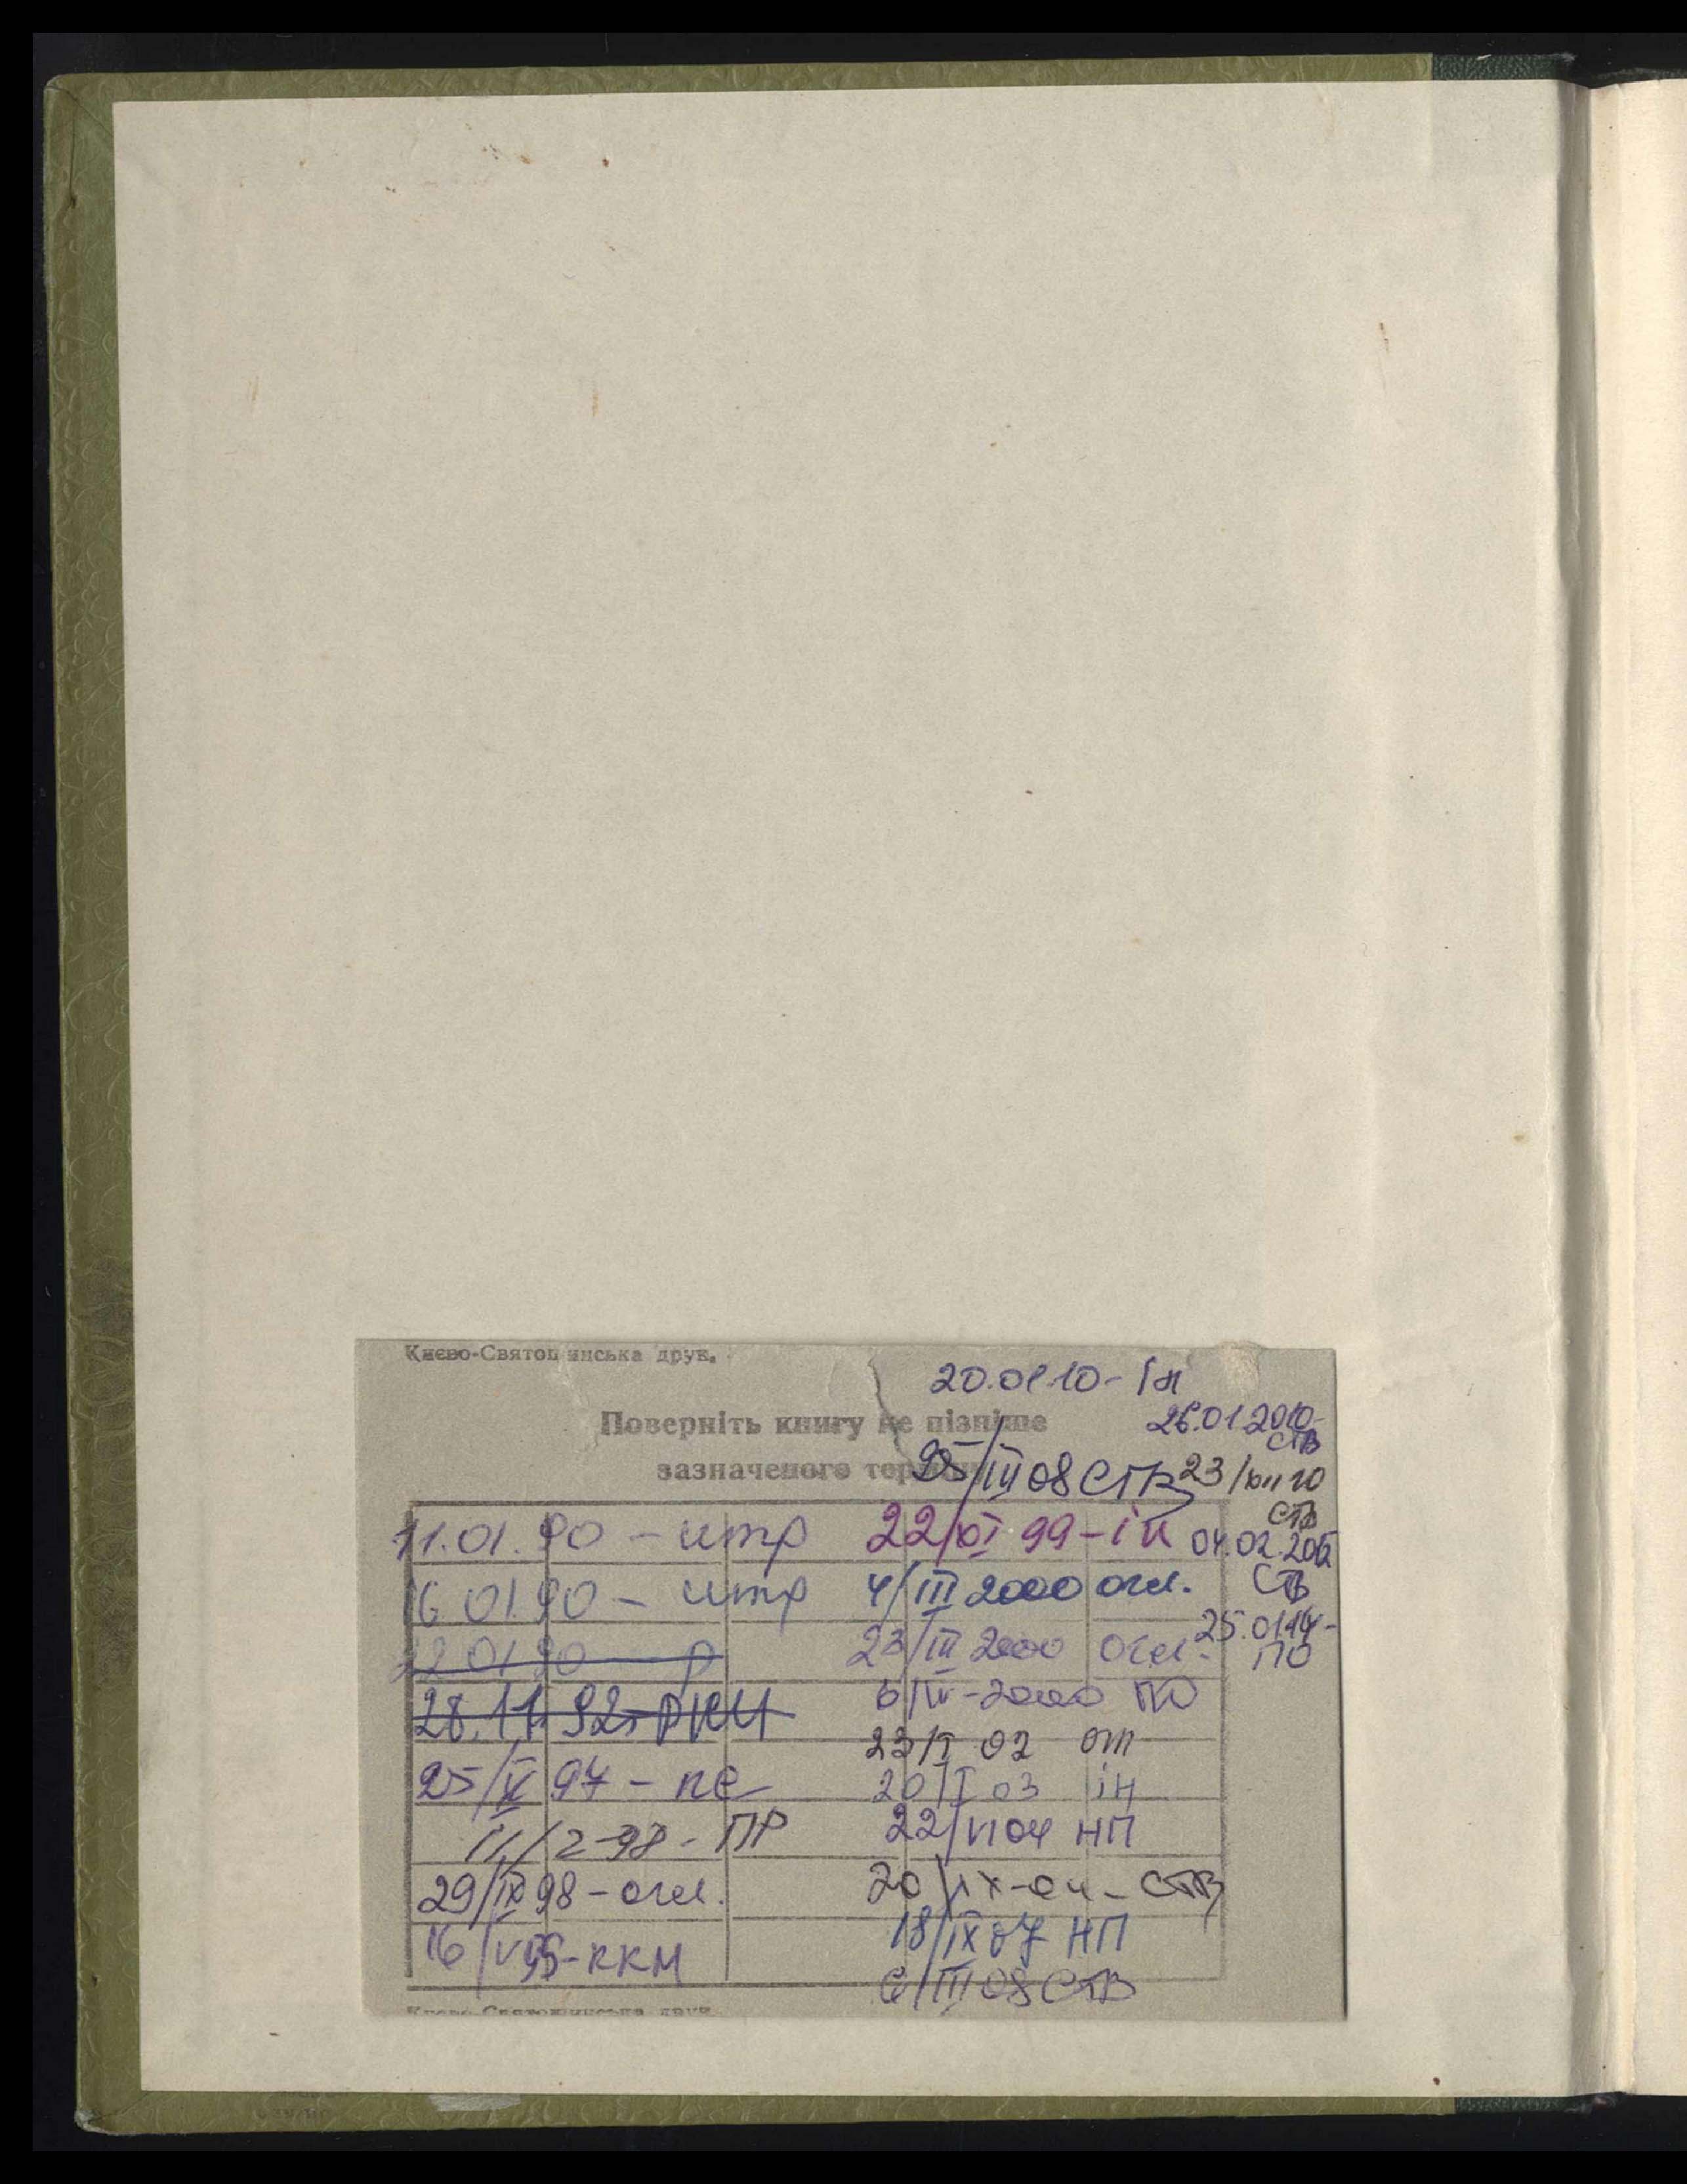 Києво-Святошинська друк.
20.01.10 - Ін
Поверніть книгу не пізніше
26.01.2010-
СТВ
зазначеного терміну
25/III 08 СТВ
23/VII 10
СТВ
11.01.90 - штр
22/XI 99 - ін
04.02.2012
СТВ
16 01.90 - штр
4/III 2000 огл.
22 01 90 - р
23/III 2000 огл.
25.01.14-
ПО
28.11. 92
6/IV-2000 ПО
25/IX 97 - пе
23/I 02 от
20/I 03 ін
11/2-98 - ПР
22/VI 04 НП
29/IX 98 - огл.
20/IX-04 - СТВ
16/V 99 - ККМ
18/IX 07 НП
6/III 08 СТВ
Києво-Святошинська друк.